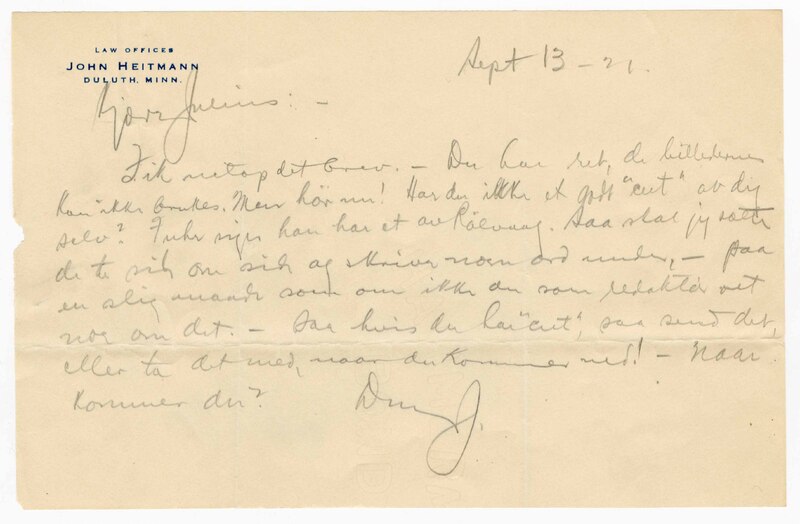 LAW OFFICES
JOHN HEITMANN
DULUTH, MINN.
Sept 13 - 21.
Kjære Julius: -
Fik netop dit brev. - Du har ret, de billederne
kan ikke brukes. Men hør nu! Har du ikke et godt "cut" av dig
selv? Fuhr siger han har et av Rølvaag. Saa skal jeg sætte
de to side om side og skrive noen ord under, - paa
en slig maade som om ikke du som redaktør vet
nog om det. - Saa hvis du har "cut", saa send det,
eller ta det med, naar du kommer ned! - Naar
kommer du?
Din J.